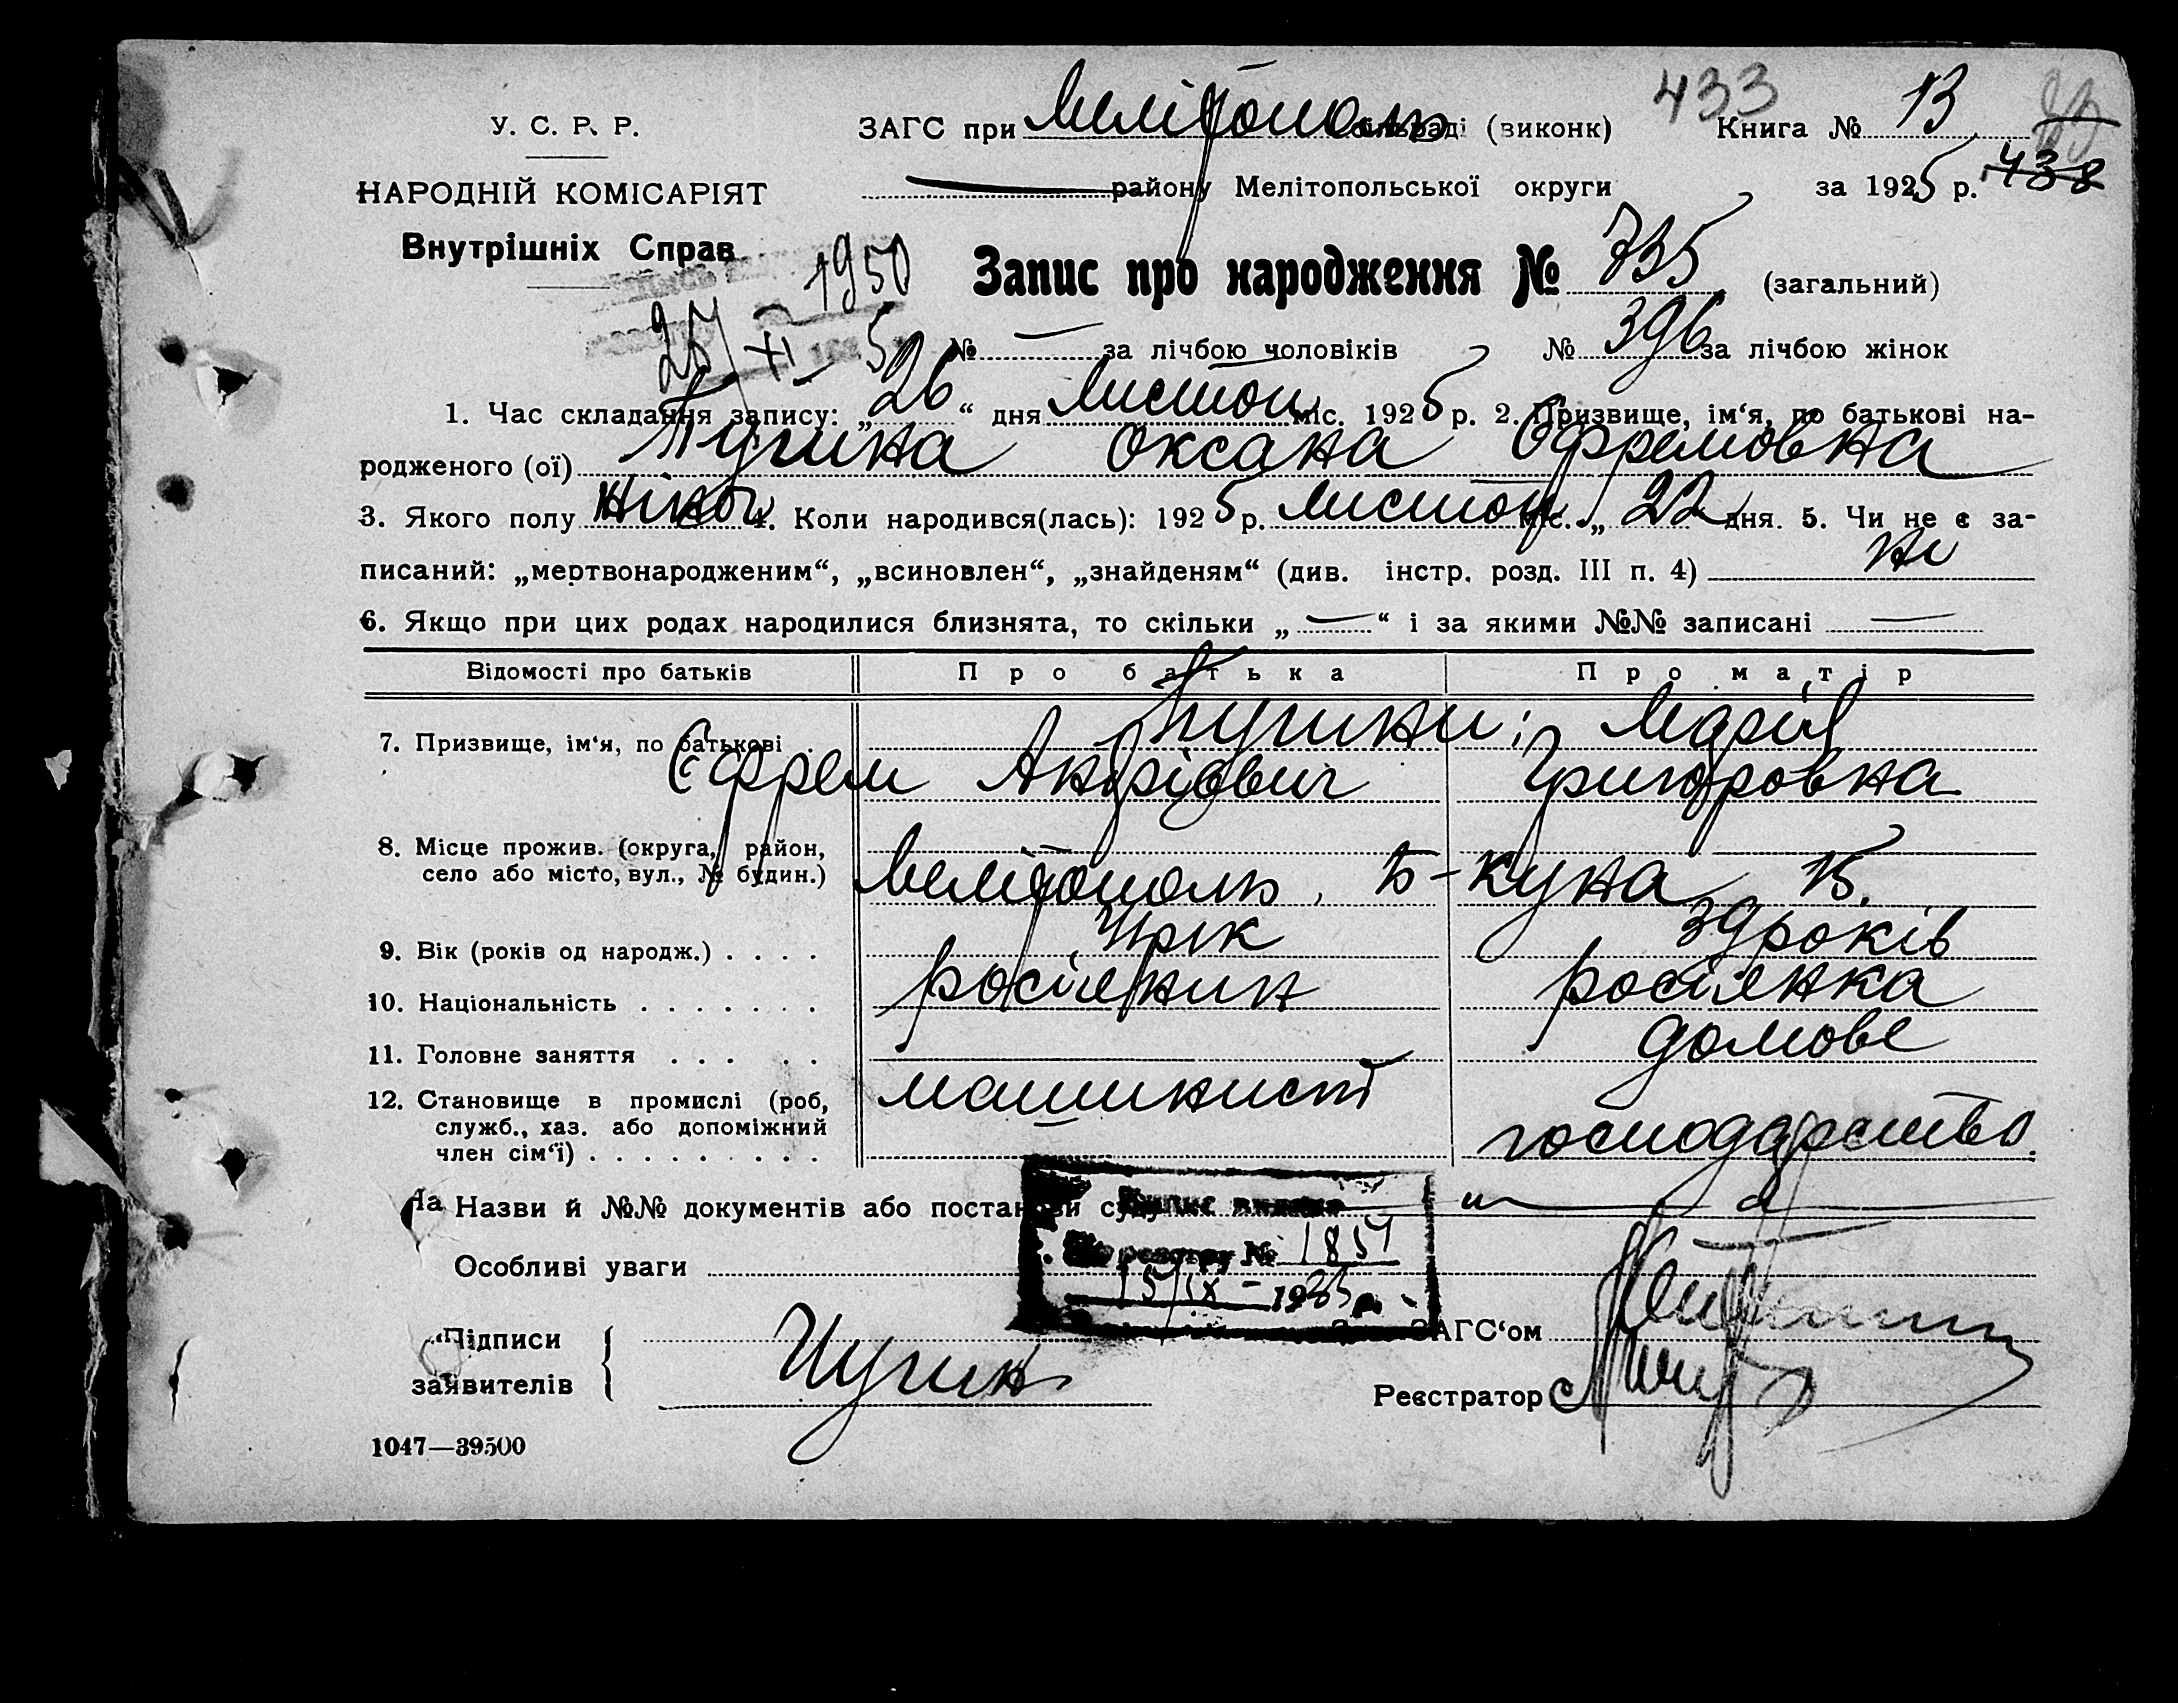 433
У. С. Р. Р.
ЗАГС при Мелітополь сільраді (виконк) Книга № 13
НАРОДНІЙ КОМІСАРІЯТ
району Мелітопольської округи за 1925 р. 438
Внутрішніх Справ
Запис про народження № 735 (загальний)
1950
№ — за лічбою чоловіків № 396 за лічбою жінок
1. Час складання запису: „26“ дня Листоп міс. 1925 р. 2. Призвище, ім‘я, по батькові на-
родженого (ої) Пугина Оксана Єфремовна
3. Якого полу жіноч 4. Коли народився(лась): 1925 р. Листоп міс. „22 дня. 5. Чи не є за-
писаний: „мертвонародженим“, „всиновлен“, „знайденям“ (див. інстр. розд. III п. 4) ні
6. Якщо при цих родах народилися близнята, то скільки „—“ і за якими №№ записані —
Відомості про батьків Про батька Про матір
7. Призвище, ім‘я, по батькові Пугини; Марія
Єфрем Андрієвич Григоровна
8. Місце прожив. (округа, район,
село або місто, вул., № будин.) Мелітополь, Б-Куна 15.
9. Вік (років од народж.) . . . . 39 років
10. Національність . . . . . . . росіянин росіянка
11. Головне заняття . . . . . домове
12. Становище в промислі (роб, машинист
служб., хаз. або допоміжний господарство.
член сім‘ї) . . . . . . . . .
На Назви й №№ документів або постанови суду
реєстру № 1857
Особливі уваги
15/IX – 1935 р.
Підписи
ЗАГС‘ом
заявителів Пугин
Реєстратор
1047—39500